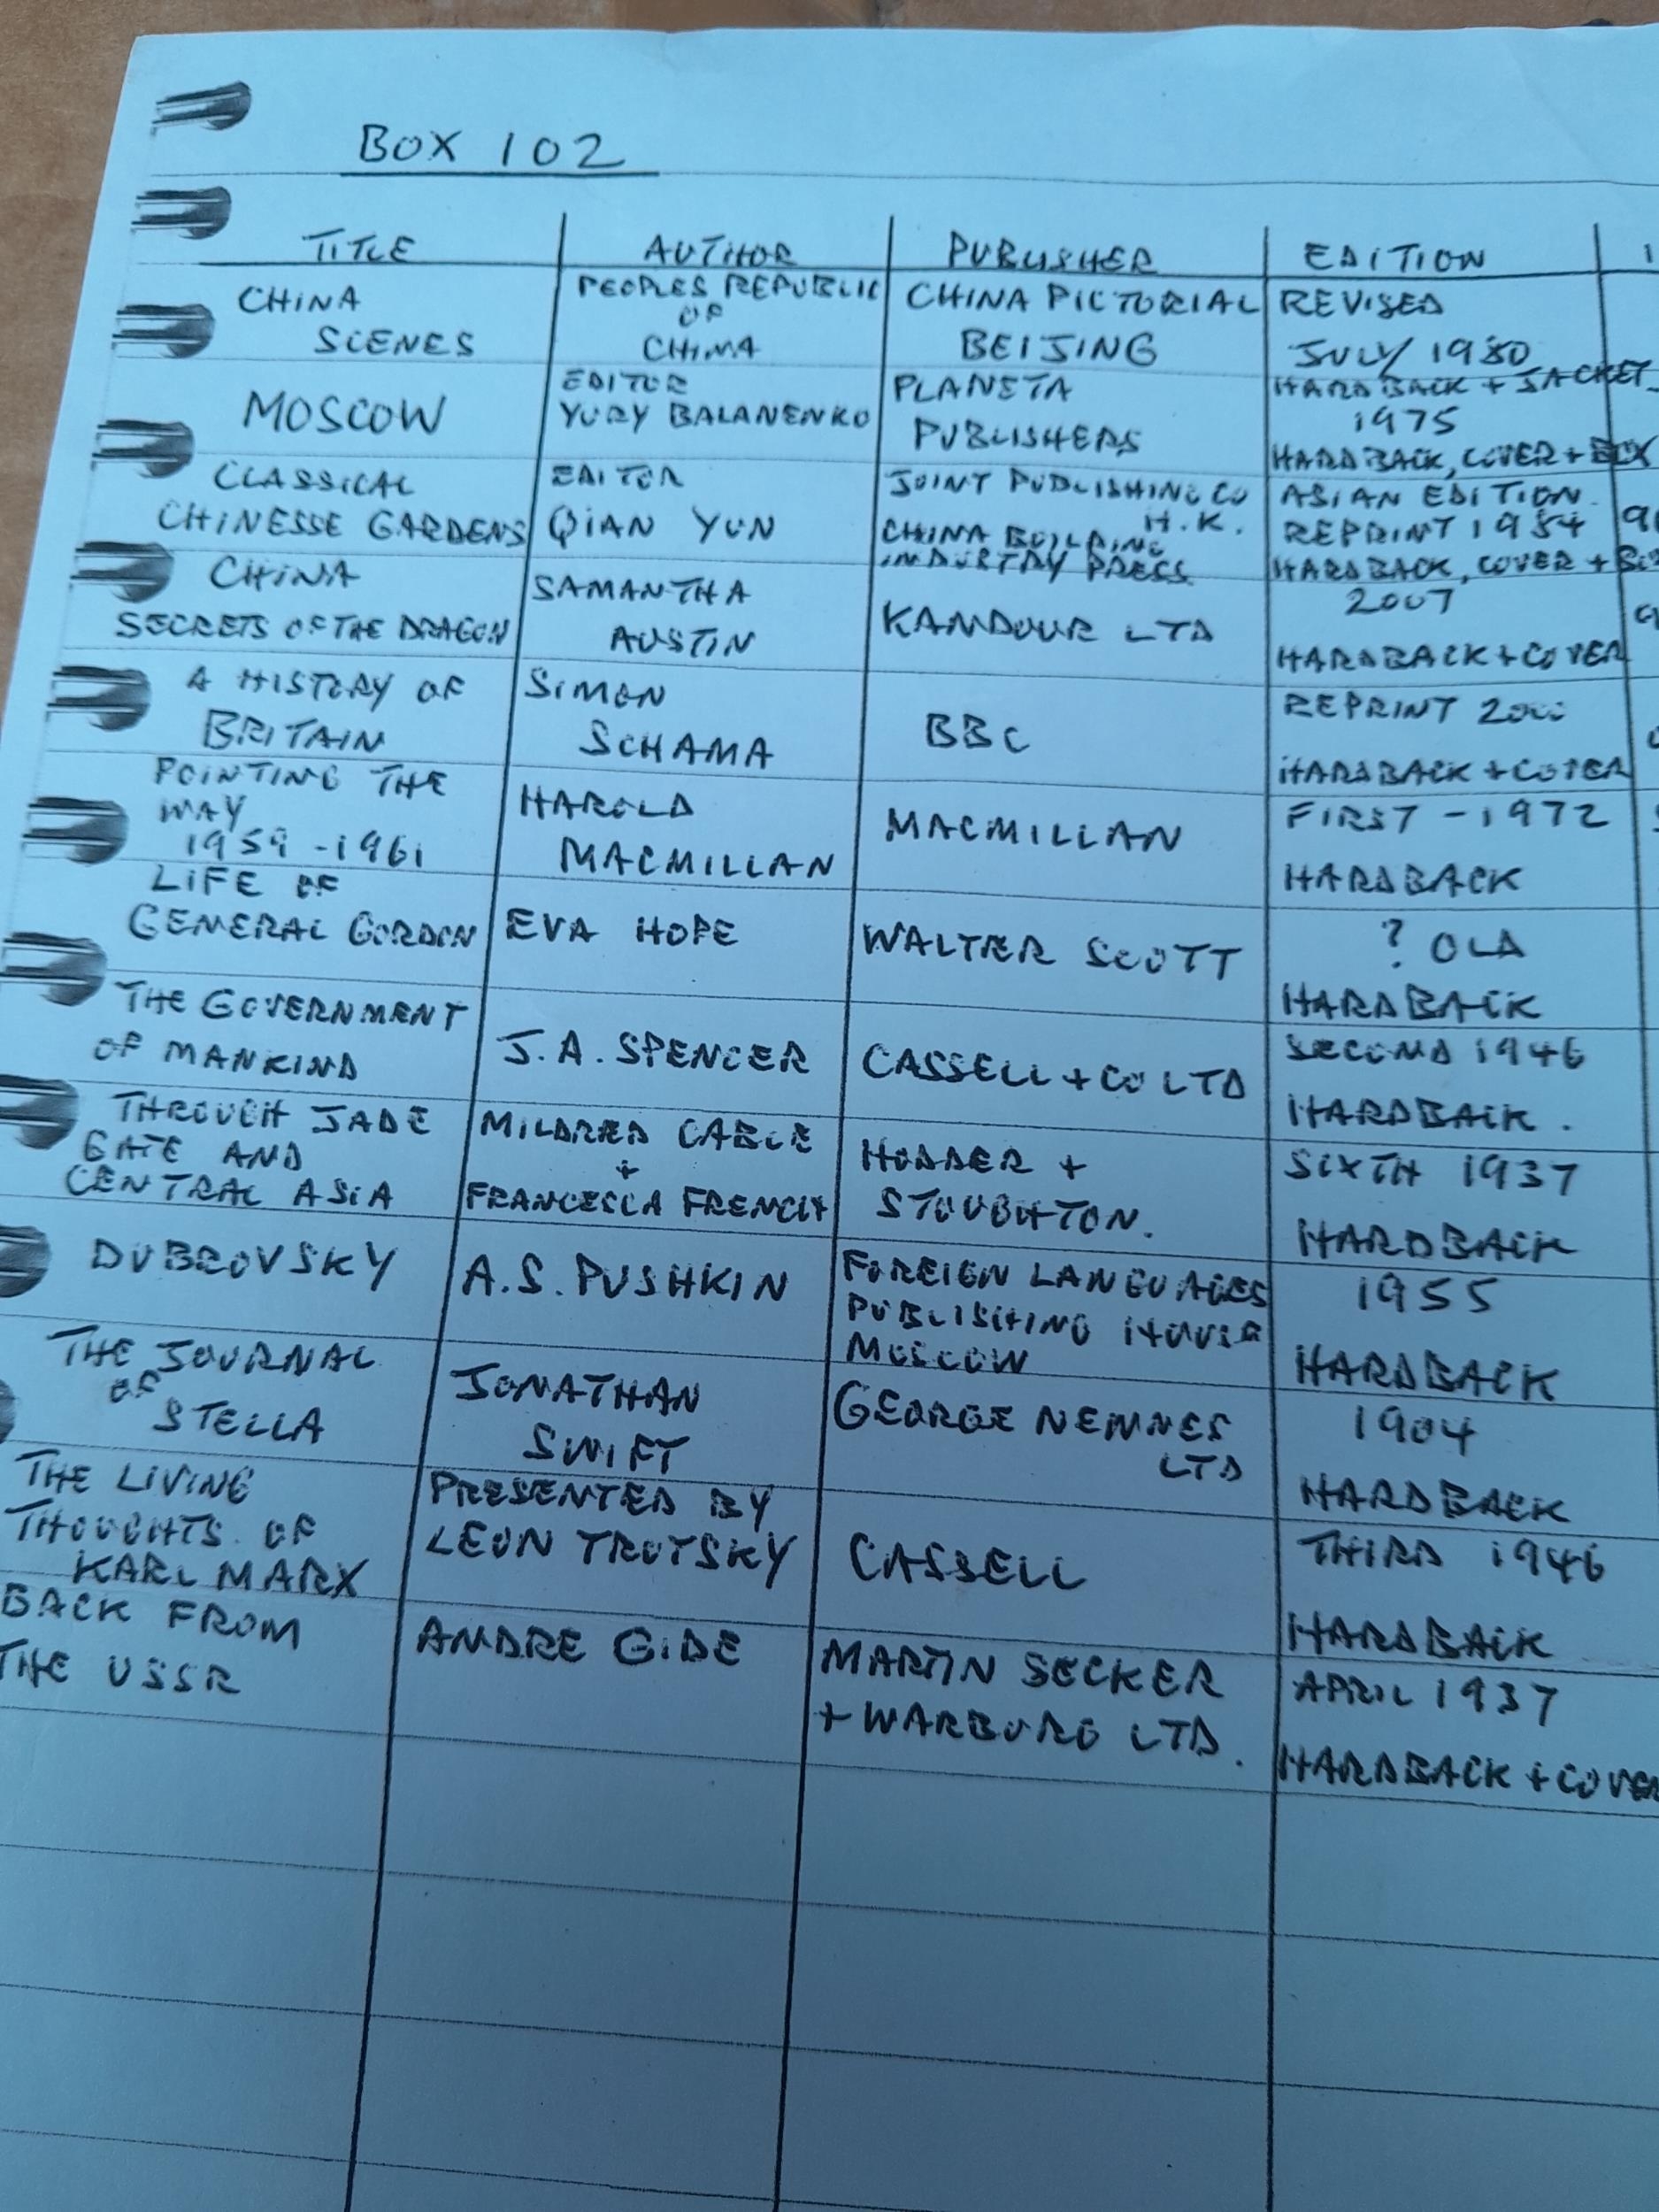 BOX 102
TITLE AUTHOR PUBLISHER EDITION
CHINA
SCENES
PEOPLES REPUBLIC
OF
CHINA
CHINA PICTORIAL
BEIJING
REVISED
JULY 1980
HARDBACK + JACKET
MOSCOW
EDITOR
YURY BALANENKO
PLANETA
PUBLISHERS
1975
HARDBACK, COVER + BOX
CLASSICAL
CHINESSE GARDENS
EDITOR
QIAN YUN
JOINT PUBLISHING CO
H.K.
CHINA BUILDING
INDUSTRY PRESS
ASIAN EDITION
REPRINT 1984
HARDBACK, COVER +
CHINA
SECRETS OF THE DRAGON
SAMANTHA
AUSTIN
KANDOUR LTD
2007
HARDBACK + COVER
A HISTORY OF
BRITAIN
SIMON
SCHAMA
BBC
REPRINT 2000
HARDBACK + COVER
POINTING THE
WAY
1959 - 1961
HAROLD
MACMILLAN
MACMILLAN
FIRST - 1972
HARDBACK
LIFE OF
GENERAL GORDON
EVA HOPE
WALTER SCOTT
? OLD
HARDBACK
THE GOVERNMENT
OF MANKIND
J.A. SPENCER
CASSELL + CO LTD
SECOND 1946
HARDBACK.
THROUGH JADE
GATE AND
CENTRAL ASIA
MILDRED CABLE
+
FRANCESCA FRENCH
HODDER +
STOUGHTON.
SIXTH 1937
HARDBACK
DUBROVSKY
A.S. PUSHKIN
FOREIGN LANGUAGES
PUBLISHING HOUSE
MOSCOW
1955
HARDBACK
THE JOURNAL
OF
STELLA
JONATHAN
SWIFT
GEORGE NEWNES
LTD
1904
HARDBACK
THE LIVING
THOUGHTS OF
KARL MARX
PRESENTED BY
LEON TROTSKY
CASSELL
THIRD 1946
HARDBACK
BACK FROM
THE USSR
ANDRE GIDE
MARTIN SECKER
+ WARBURG LTD.
APRIL 1937
HARDBACK + COVER